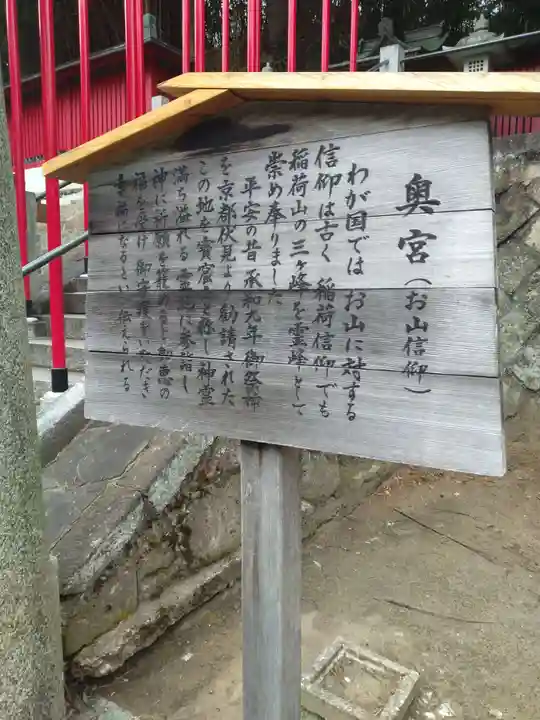 奥宮(お山信仰)
わが国ではお山に対する
信仰は古く、稲荷信仰でも
稲荷山の三ヶ峰を霊峰として
崇め奉りました。
平安の昔 承和九年 御祭神
を京都伏見より勧請された
この地を霊窟と称し 神霊
満ち溢れる霊地に参詣し
神に祈願を籠め
福を授け
るといい伝えられる